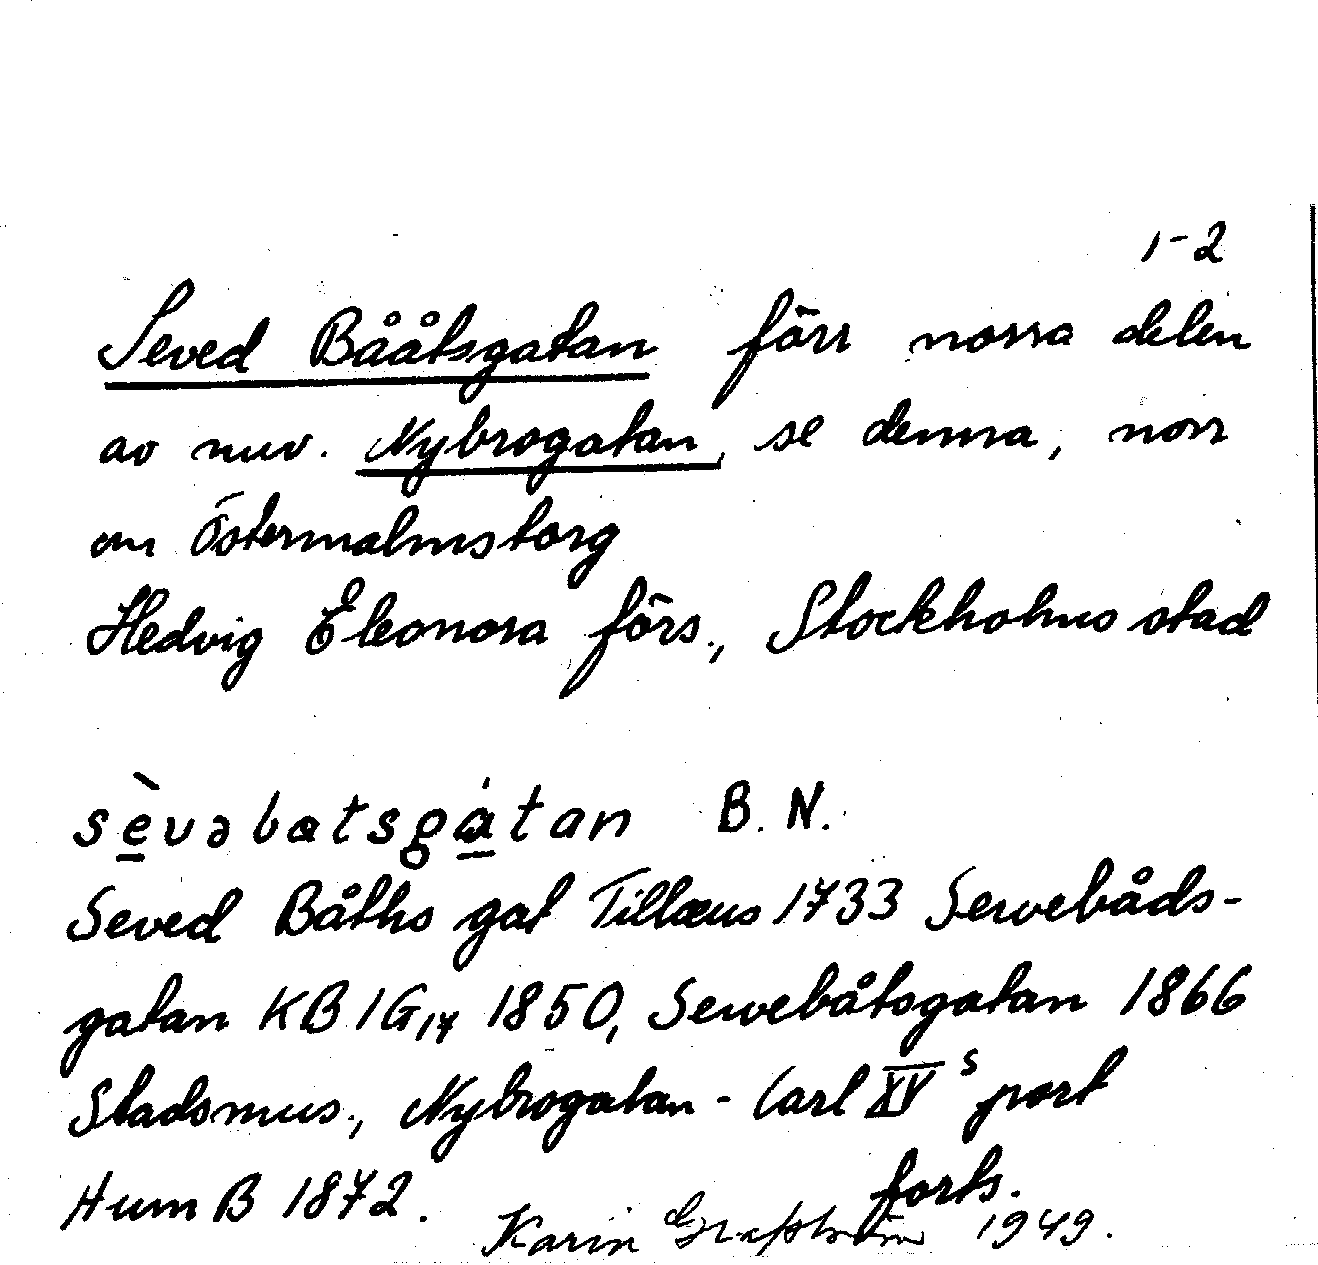 1-2
Seved Bååtsgatan förr norra delen
av nuv. Nybrogatan, se denna, norr
om Östermalmstorg
Hedvig Eleonora förs., Stockholms stad
sèvəbatsgátan B. N.
Seved Båths gat Tillæus 1733 Sewebåds-
gatan KB IG,17 1850, Sewebåtsgatan 1866
Stadsmus., Nybrogatan - Carl XVs port
Hum B 1872.
forts.
Karin 1949.